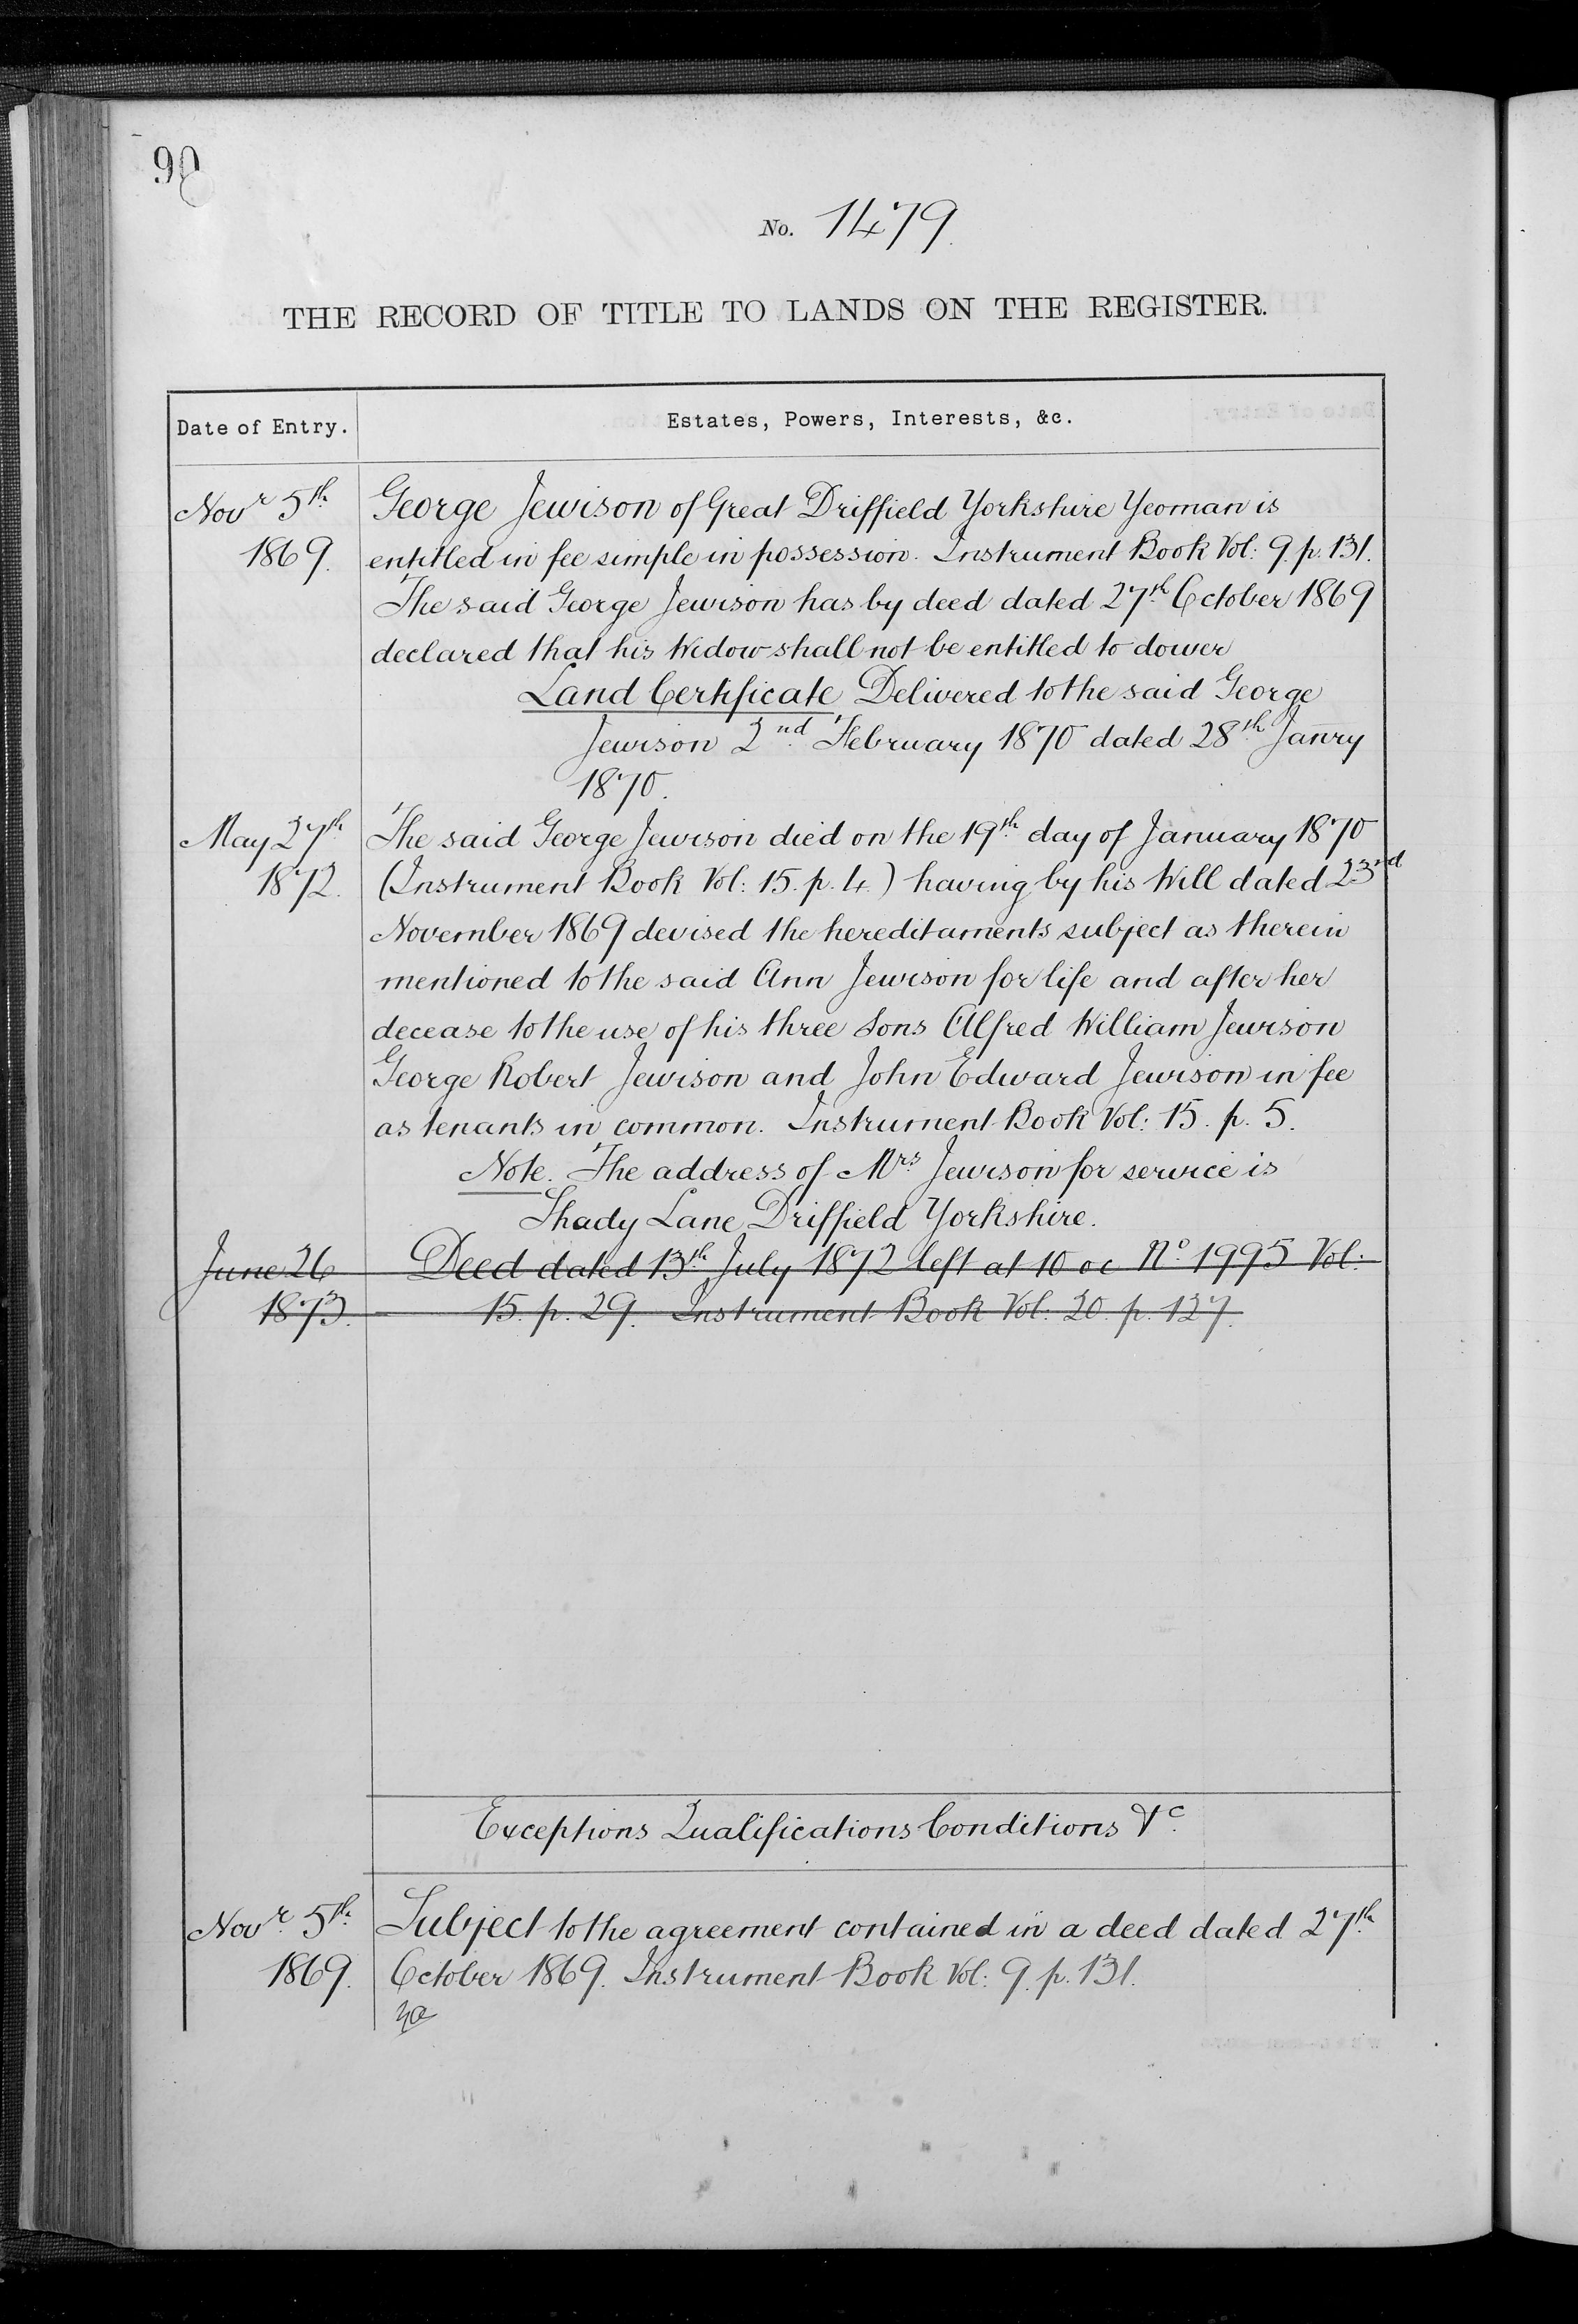 90
No. 1479.
THE RECORD OF TITLE TO LANDS ON THE REGISTER.
Date of Entry.
Estates, Powers, Interests, &c.
Novr 5th 1869.
George Jewison of Great Driffield Yorkshire Yeoman is
entitled in fee simple in possession. Instrument Book Vol: 9. p. 131.
The said George Jewison has by deed dated 27th October 1869
declared that his Widow shall not be entitled to dower
Land Certificate Delivered to the said George
Jewison 2nd February 1870 dated 28th Janry
1870.
May 27th 1872.
The said George Jewison died on the 19th day of January 1870
(Instrument Book Vol: 15. p. 4.) having by his Will dated 23rd
November 1869 devised the hereditaments subject as therein
mentioned to the said Ann Jewison for life and after her
decease to the use of his three Sons Alfred William Jewison
George Robert Jewison and John Edward Jewison in fee
as tenants in common. Instrument Book Vol: 15. p. 5.
Note. The address of Mrs Jewison for service is
Shady Lane Driffield Yorkshire.
June 26 1873.
Deed dated 13th July 1872 left at 10 oc No 1995 Vol:
15. p. 29. Instrument Book Vol: 20. p. 127.
Exceptions Qualifications Conditions &c.
Novr 5th 1869.
Subject to the agreement contained in a deed dated 27th
October 1869. Instrument Book Vol: 9. p. 131.